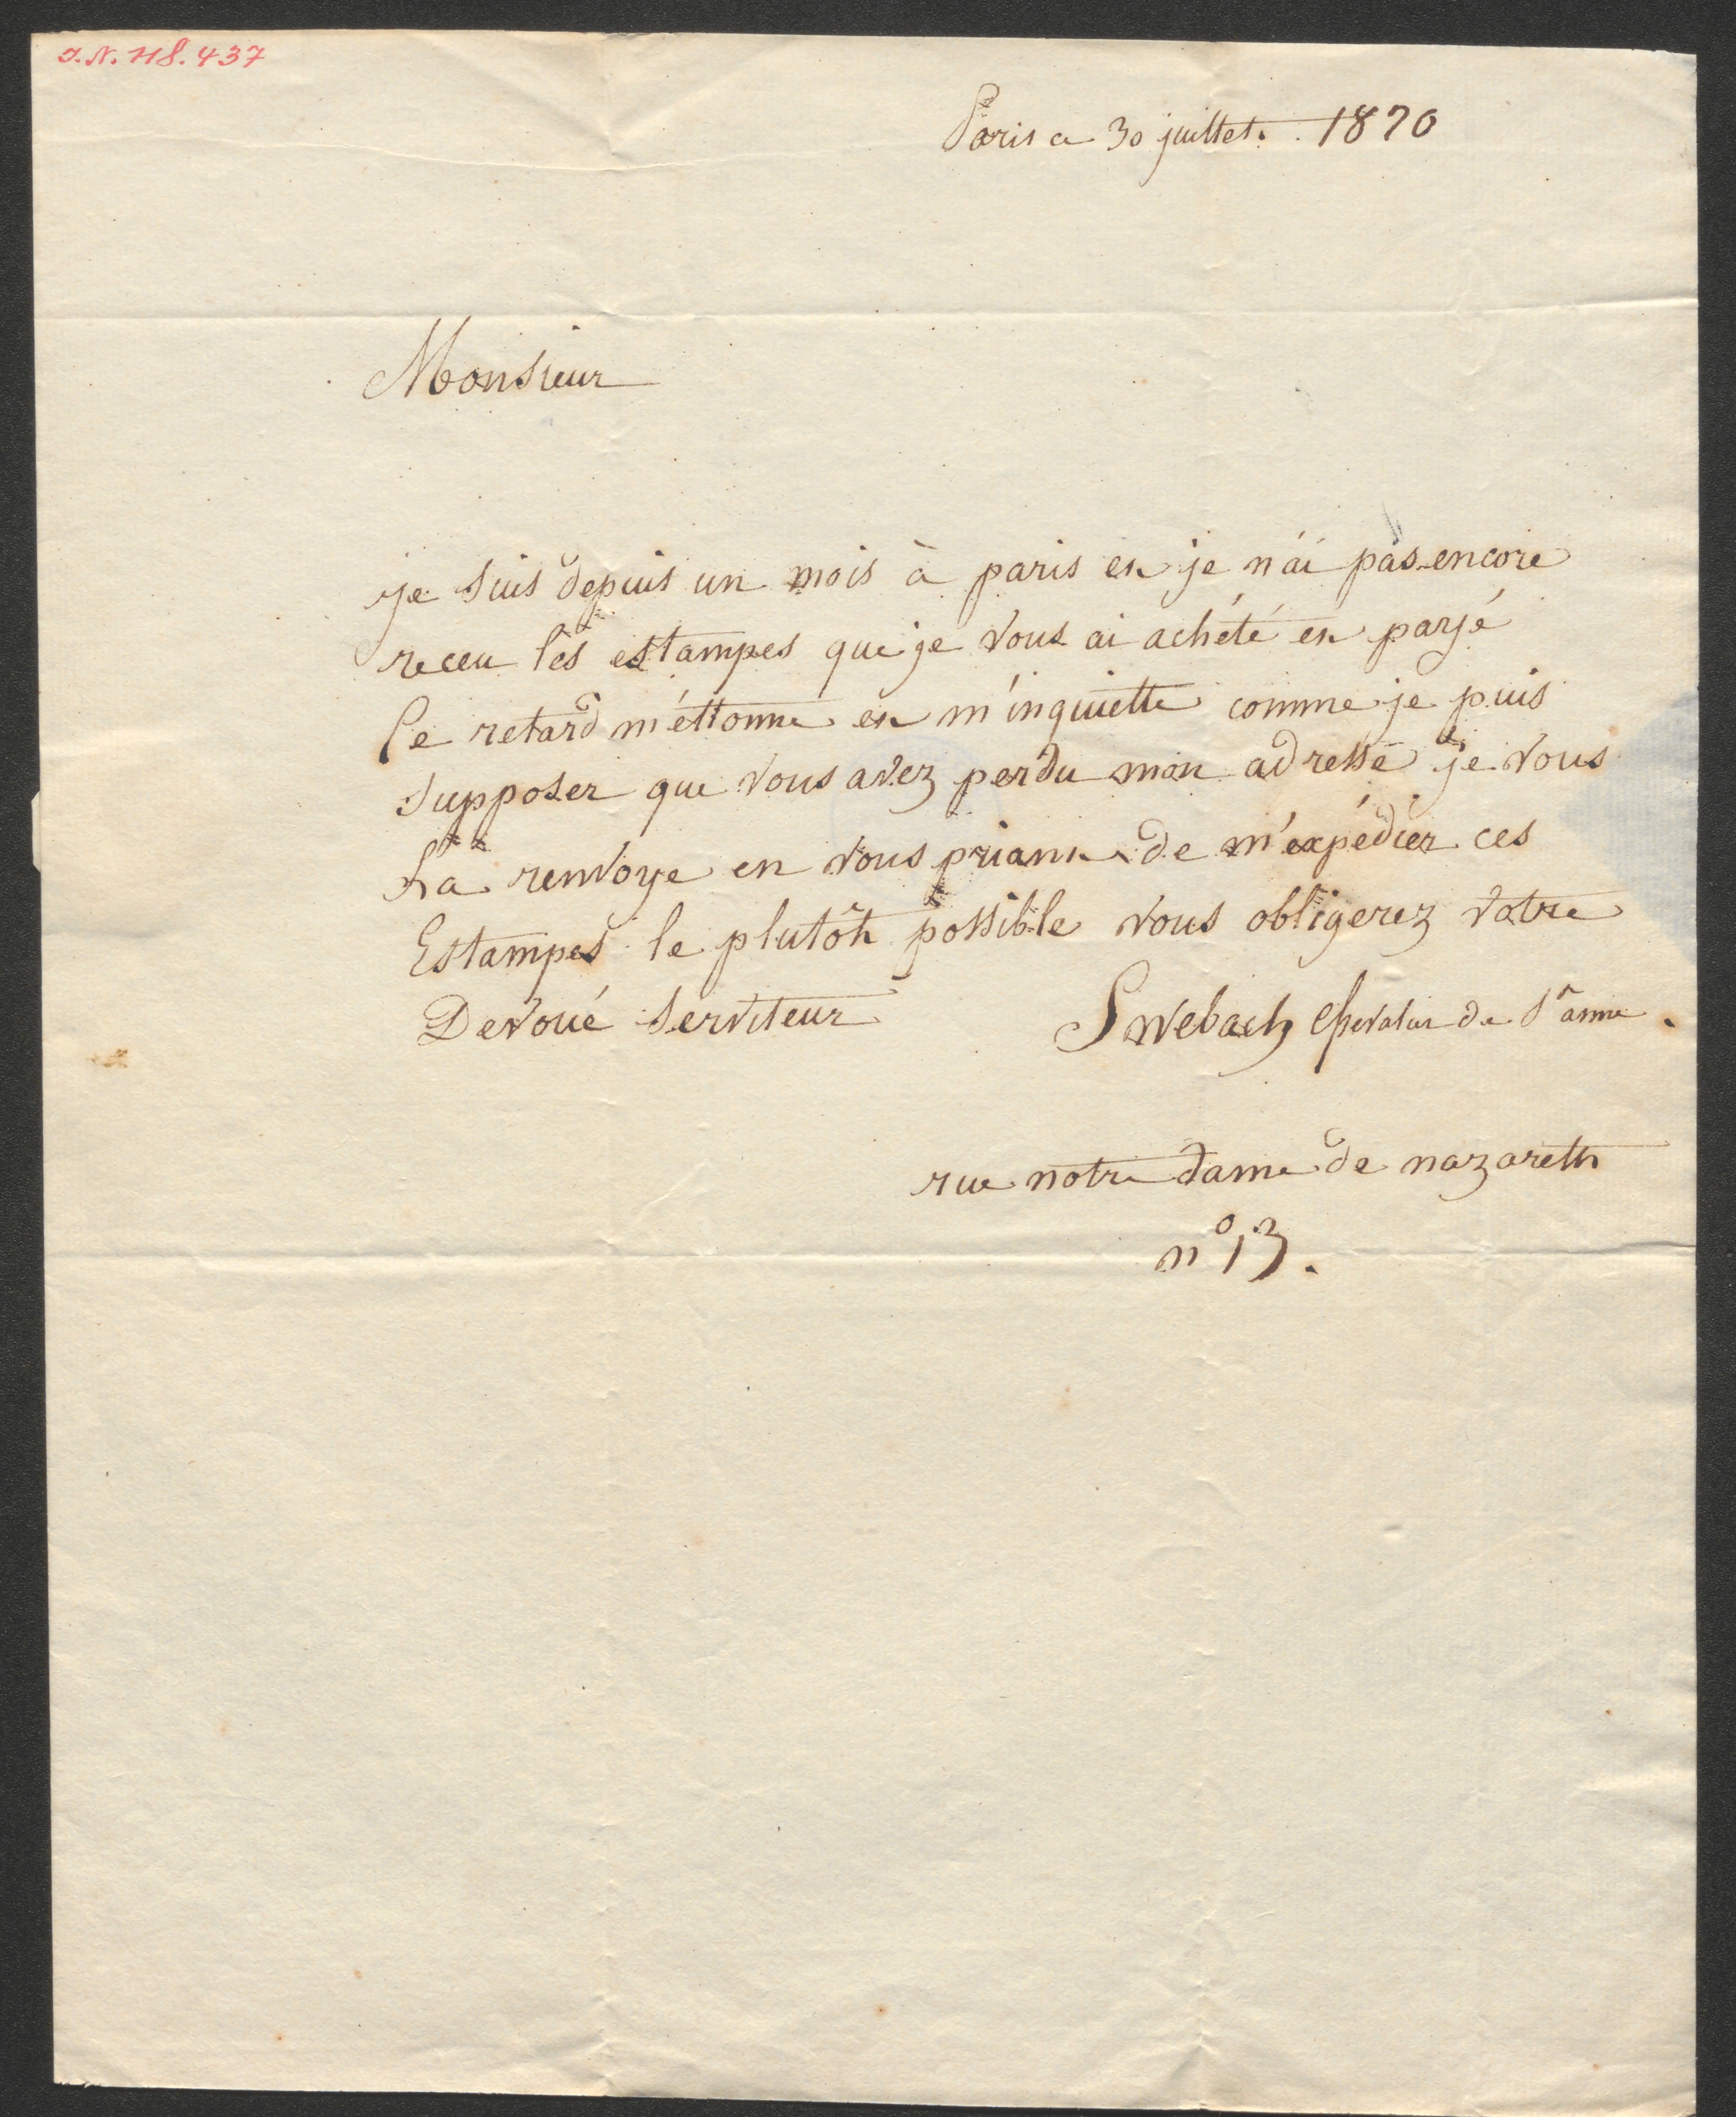 J.N. 118.437
Paris ce 30 juillet. 1820
Monsieur
je suis depuis un mois à paris et je n'ai pas encore
receu les estampes que je vous ai achété et payé
Ce retard m'éttonne et m'inquiette comme je puis
supposer que vous avez perdu mon adresse je vous
La renvoye en vous priant de m'expédier ces
Estampes le plutôt possible vous obligerez votre
Devoué serviteur Swebach chevalier de Ste anne.
rue notre dame de nazareth
n° 13.